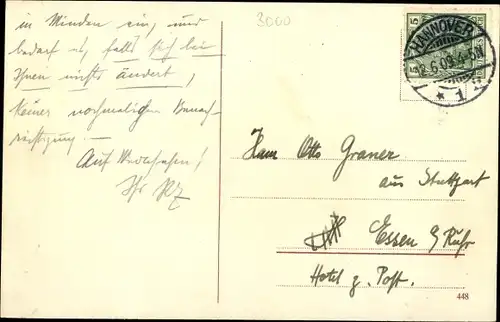 in Minden ein, und
bedarf es, falls sich bei
Ihnen nichts ändert,
keiner nochmaligen Benach-
richtigung. —
Auf Wiedersehen!
Ihr
3000
5 5
HANNOVER
12.6.09. 4-5N
* 1
Herrn Otto Graner
aus Stuttgart
Essen a/Ruhr
Hotel z. Post.
448